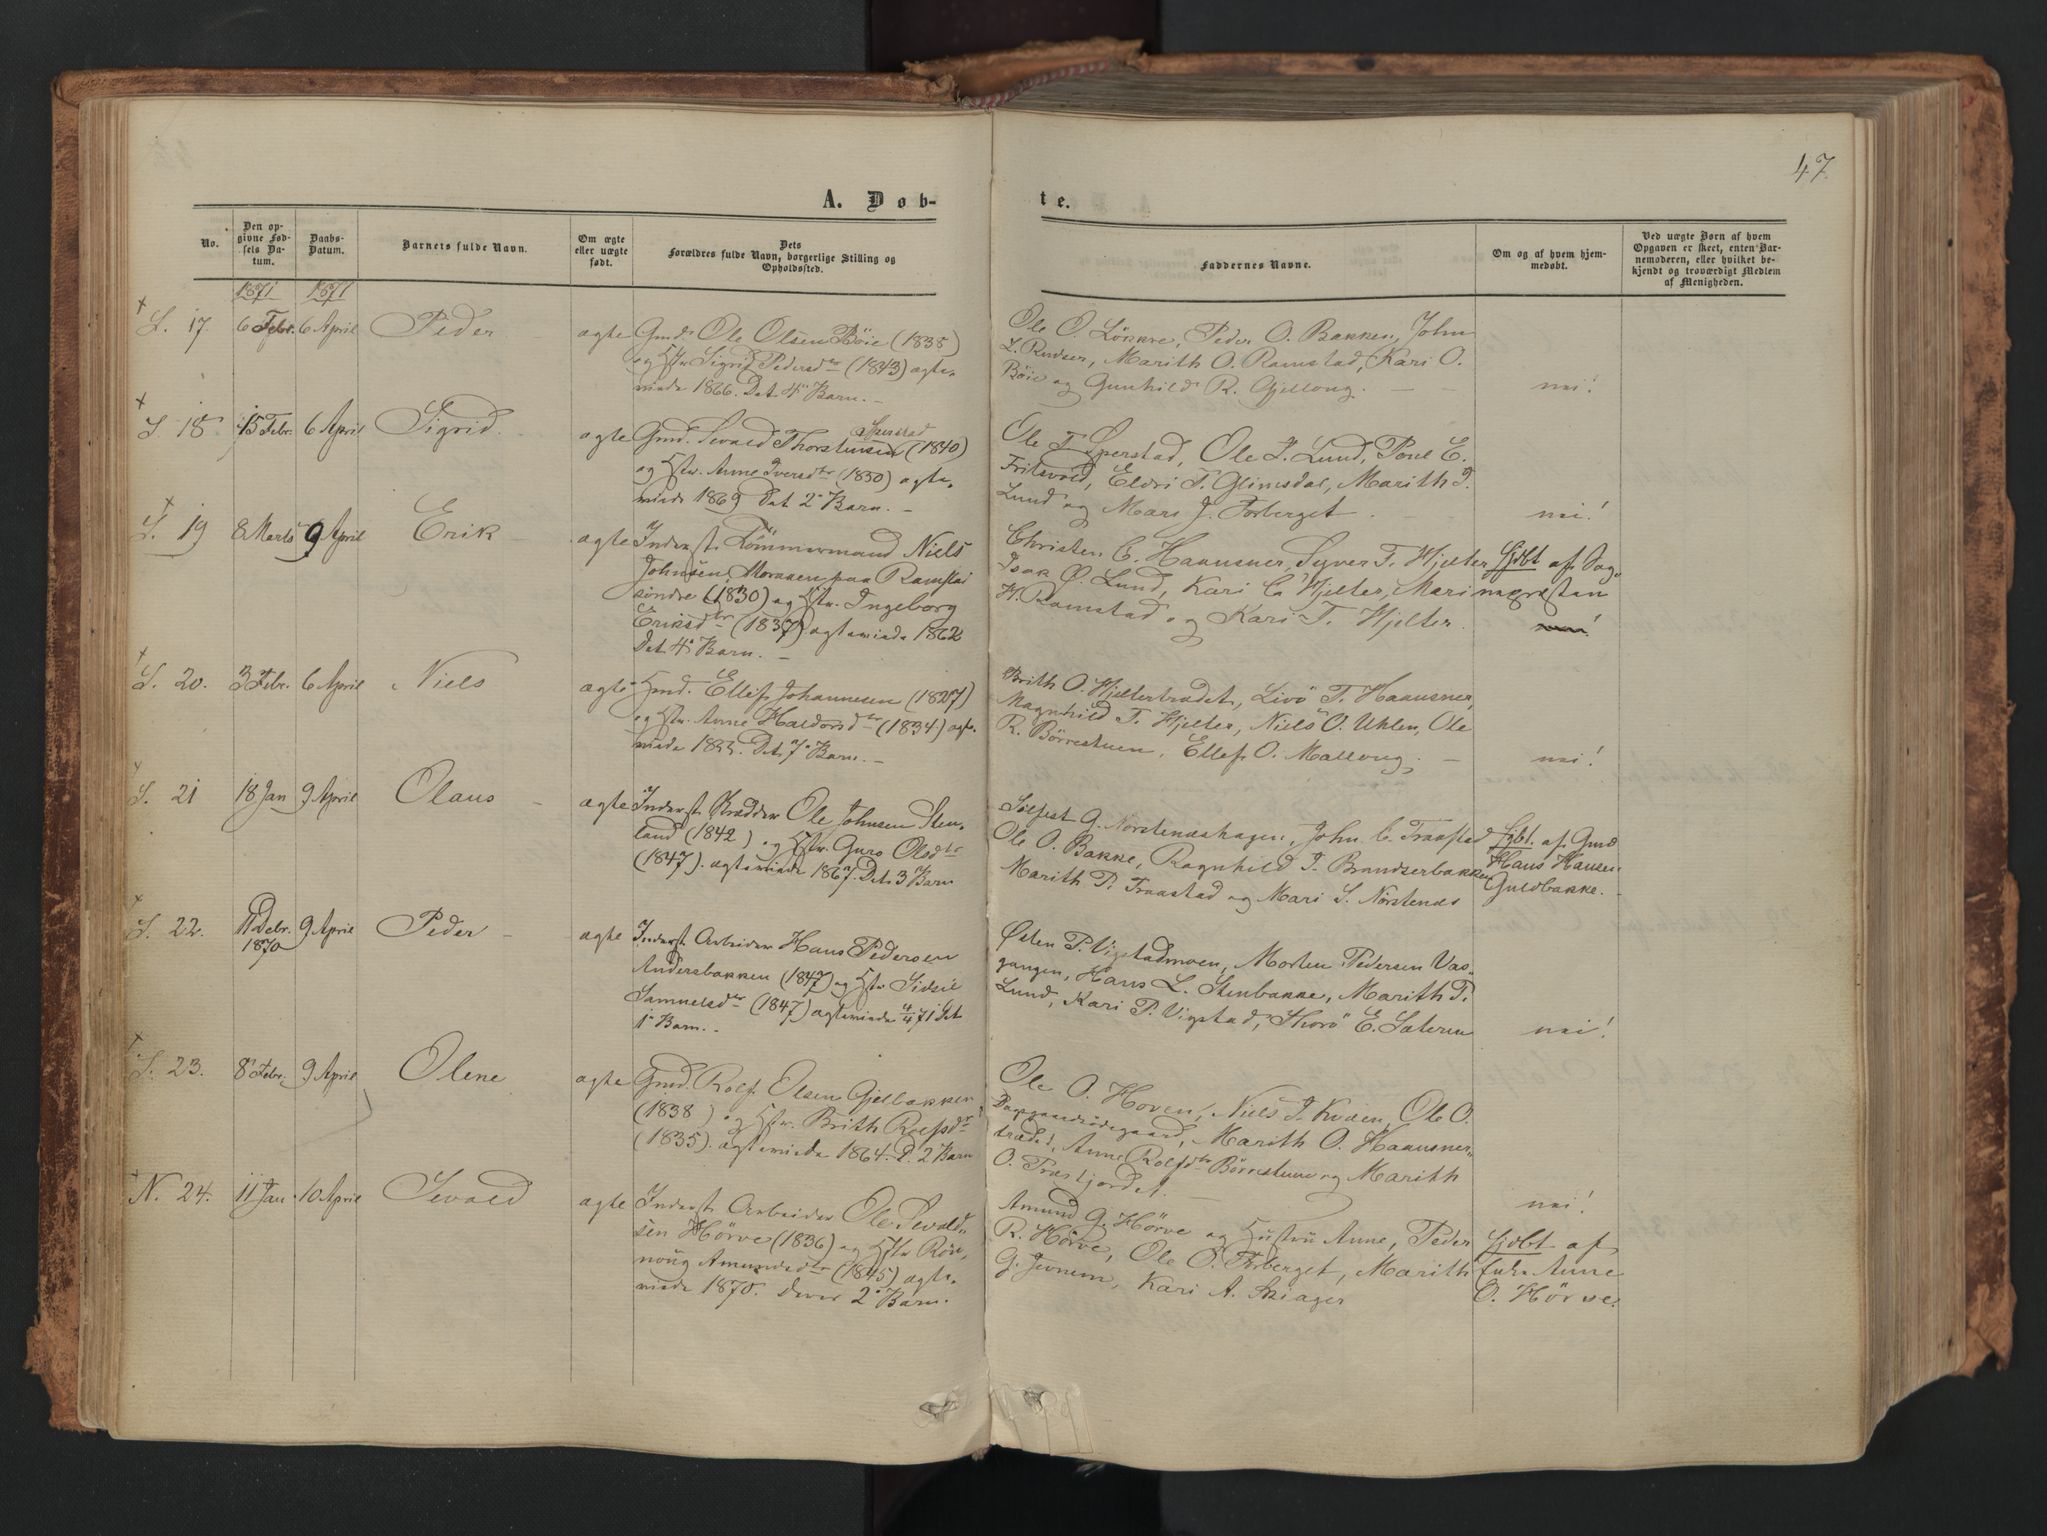 47
A. Døb-
te.
No.
Den op-
givne Fød-
sels Da-
tum.
Daabs-
Datum.
Barnets fulde Navn.
Om ægte
eller uægte
født.
Dets
Forældres fulde Navn, borgerlige Stilling og
Opholdssted.
Faddernes Navne.
Om og af hvem hjem-
medøbt.
Ved uægte Børn af hvem
Opgaven er skeet, enten Bar-
nemoderen, eller hvilket be-
kjendt og troværdigt Medlem
af Menigheden.
1871 1871
17 6 Febr. 6 April Peder
ægte Gmd. Ole Olsen Böie (1838)
og Hstr. Sigrid Pedersdtr (1843) ægte-
viede 1866. Det 4de Barn.
Ole O. Lökke, Peder O. Bakken, John
L. Rudser, Marith O. Ramstad, Kari O.
Böie og Gunhild R. Gjellong.
nei!
18 15 Febr. 6 April Sigrid.
ægte Gmd. Sevald Thorstensen Sperstad (1840)
og Hstr. Anne Iversdtr (1830) ægte-
viede 1869 Det 2det Barn.
Ole T. Sperstad, Ole I. Lund, Poul E.
Fritsvold, Eldri T. Glimsdal, Marith T.
Lund og Mari J. Forberget.
nei!
19 8 Marts 9 April Erik
ægte Inderst Tömmermand Niels
Johnsen Morkken paa Ramstad
söndre (1830) og Hstr. Ingeborg
Eriksdtr (1837) ægteviede 1862
Det 4de Barn.
Christen C. Haausner, Syver T. Hjelter
Isak Ø. Lund, Kari C. Hjelter, Mari
H. Ramstad og Kari T. Hjelter.
Hjdbt af Sog-
nepræsten
nei!
20. 3 Febr. 6 April Niels
ægte Gmd. Ellef Johannesen (1827)
og Hstr. Anne Haldorsdtr (1834) ægte-
viede 1855. Det 7de Barn.
Brith O. Hjelterbrædet, Livö T. Haausner,
Magnhild T. Hjelter, Niels O. Uhlen, Ole
R. Börrestuen, Ellef O. Mallong.
nei!
21 18 Jan 9 April Olaus
ægte Inderst Skrædder Ole Johnsen Sten-
land (1842) og Hstr. Guro Olsdtr
(1847). ægteviede 1867. Det 3 Barn
Sölfest G. Norstenæshagen, John C. Traastad
Ole O. Bakke, Ragnhild I. Brandserbakken
Marith P. Traastad og Mari S. Norstenæs
Hjdbt. af Gmd
Hans Hansen
Guldbakke.
22. 11 Debr. 1870 9 April Peder
ægte Inderst Arbeider Hans Pedersen
Andersbakken (1847) og Hstr Sidsel
Samuelsdtr (1847) ægteviede 4/4 71 Det
1ste Barn.
Østen P. Vigstadmoen, Morten Pedersen Vas-
gangen, Hans L. Stenbakke, Marith T.
Lund, Kari P. Vigstad, Thorö E. Sæteren
nei!
23. 8 Febr. 9 April Olene
ægte Gmd. Rolf Olsen Gjelbakken
(1838) og Hstr. Brith Rolfsdtr
(1835). ægteviede 1864. D. 2 Barn
Ole O. Hoven, Niels I. Kvæen, Ole O.
Dapgaardsödegaard, Marith O. Haausner-
træde, Anne Rolfsdtr Börrestuen og Marith
O. Træstjordet.
nei!
N. 24. 11 Jan 10 April Sevald
ægte Inderst Arbeider Ole Sevald-
sen Hörve (1836) og Hstr Rön-
nöug Amundsdtr (1845) ægte-
viede 1870. Deres 2det Barn.
Amund G. Hörve og Hustru Anne, Peder
R. Hörve, Ole O. Forberget, Marith
G. Jevnem, Kari A. Skiager
Hjdbt af
Enke Anne
O. Hörve.